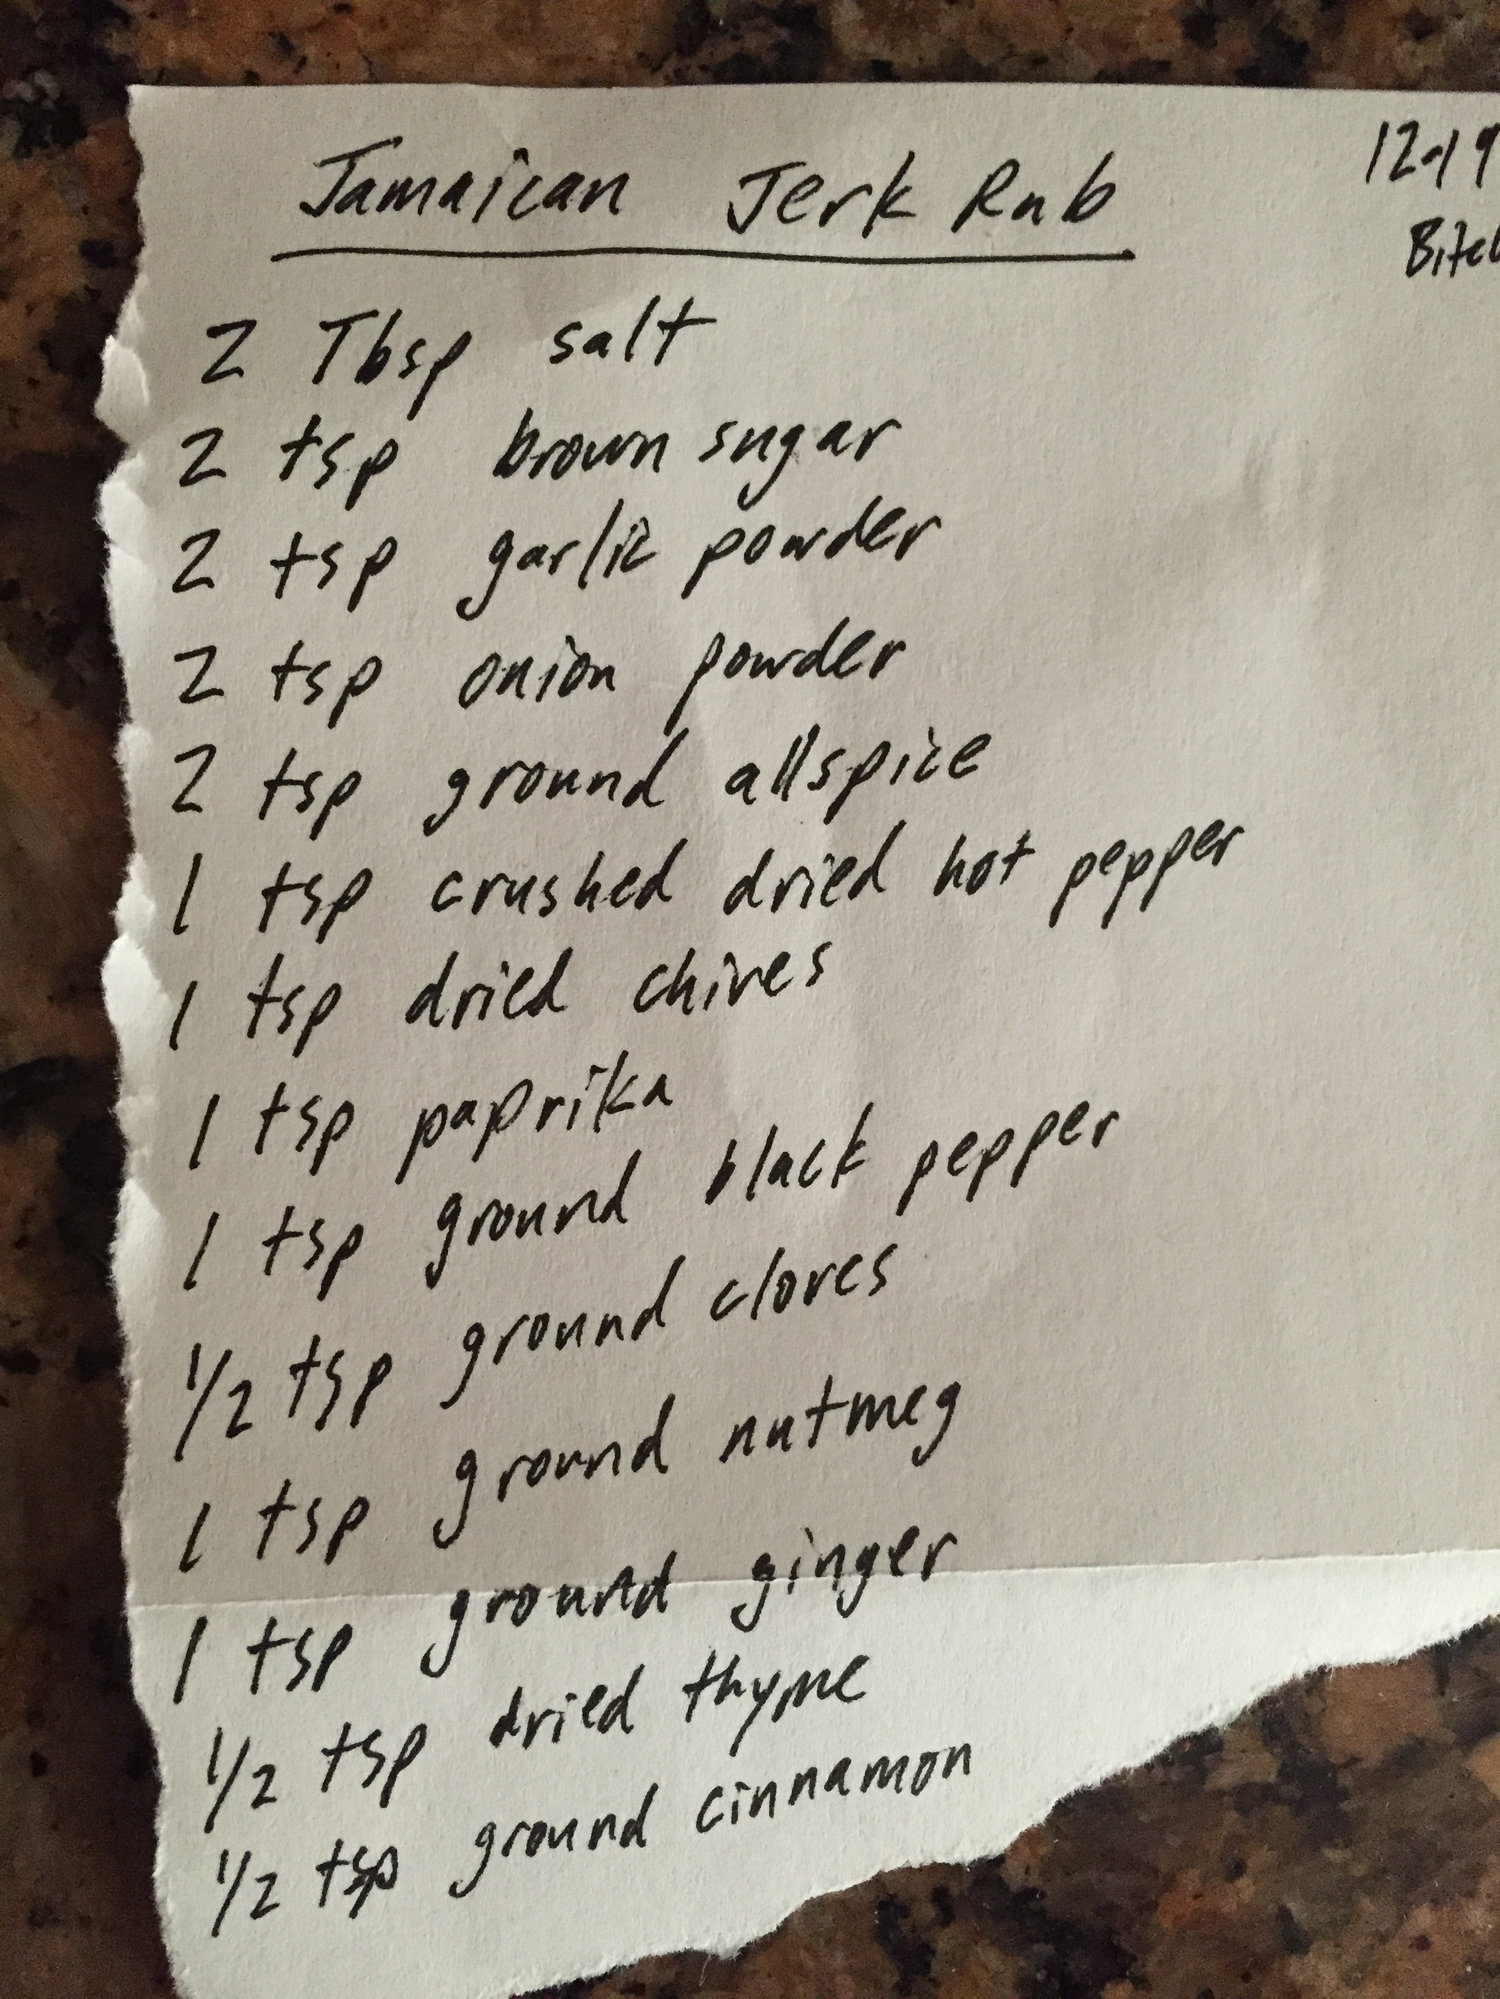 Jamaican Jerk Rub
12-19
2 Tbsp salt
2 tsp brown sugar
2 tsp garlic powder
2 tsp onion powder
2 tsp ground allspice
1 tsp crushed dried hot pepper
1 tsp dried chives
1 tsp paprika
1 tsp ground black pepper
1/2 tsp ground cloves
1 tsp ground nutmeg
1 tsp ground ginger
1/2 tsp dried thyme
1/2 tsp ground cinnamon